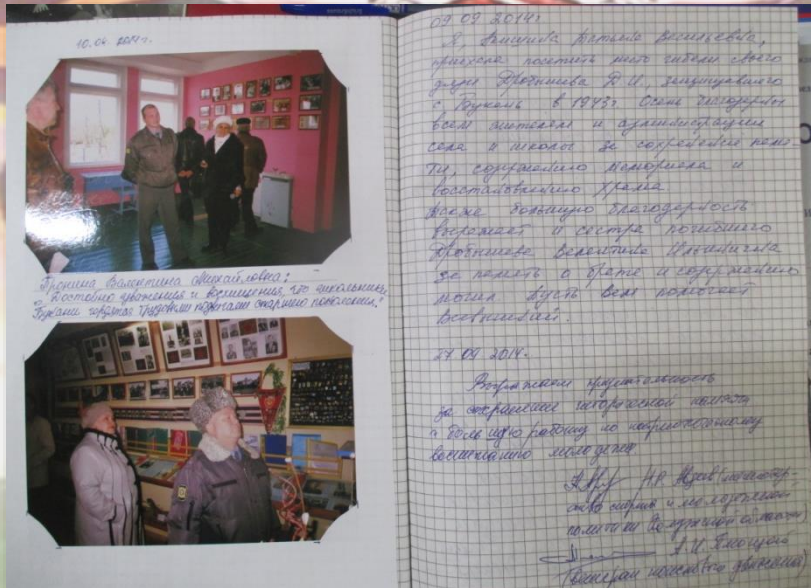 10.04.2014г.
Пронина Валентина Михайловна:
"Достойно уважения и восхищения, что школьники
гордятся трудовыми подвигами старшего поколения!"
09.09.2014г
Я, Татьяна Васильевна,
приехала посетить место гибели своего
дяди Дробышева В.И., защищавшего
с. Букань в 1943г. Очень благодарны
всем жителям и администрации
села и школы за сохранение памя-
ти, содержанию мемориала и
восстановлению храма.
Также большую благодарность
выражает и сестра погибшего
Дробышева Валентина Ильинична
за память о брате и содержанию
могил. Пусть Вам помогает
Всевышний.
27.09.2014г.
Выражаем признательность
за сохранение исторической памяти
и большую работу по патриотическому
воспитанию молодежи
Н.Р.
спорта и молодежной
политики Калужской области
А.И.
(Ветеран поискового движения)